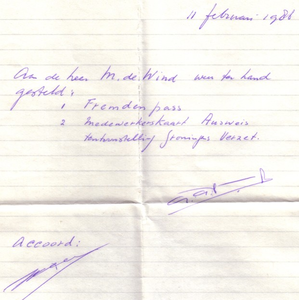 11 februari 1986
Aan de heer M. de Wind werden ter hand
gesteld:
1 Fremdenpass
2 Medewerkerskaart Ausweis
tentoonstelling Gronings Verzet.
Accoord: